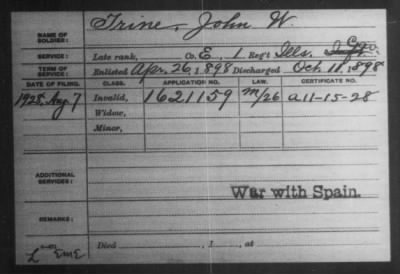 NAME OF SOLDIER: Trine, John W.
SERVICE: Late rank, Co. E, 1 Reg't Ills.
TERM OF SERVICE: Enlisted Apr. 26, 1898 Discharged Oct. 11, 1898
DATE OF FILING. CLASS. APPLICATION NO. LAW. CERTIFICATE NO.
1928, Aug 7 Invalid, 1621159 m/26 a 11-15-28
Widow,
Minor,
ADDITIONAL SERVICES:
War with Spain.
REMARKS:
Died , 1 , at
EME